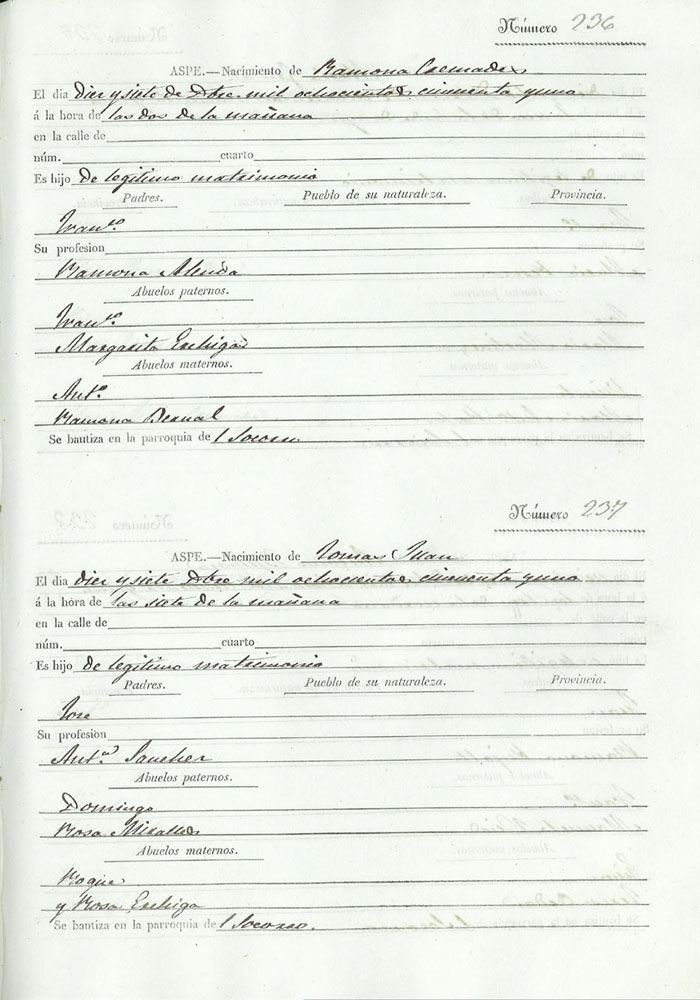 Número 236
ASPE.—Nacimiento de Ramona Cremades
El dia Diez y siete de Dbre mil ochocientos cincuenta y uno
á la hora de las dos de la mañana
en la calle de
núm. cuarto
Es hijo de legitimo matrimonio
Padres. Pueblo de su naturaleza. Provincia.
Franco.
Su profesion
Ramona Alenda
Abuelos paternos.
Franco.
Margarita
Abuelos maternos.
Anto.
Ramona Bernal
Se bautiza en la parroquia de l Socorro
Número 237
ASPE.—Nacimiento de Tomas Juan
El dia diez y siete Dbre mil ochocientos cincuenta y uno
á la hora de las siete de la mañana
en la calle de
núm. cuarto
Es hijo de legitimo matrimonio
Padres. Pueblo de su naturaleza. Provincia.
Jose
Su profesion
Anta. Sanchez
Abuelos paternos.
Domingo
Rosa Miralles
Abuelos maternos.
Roque
y Rosa
Se bautiza en la parroquia de l Socorro.